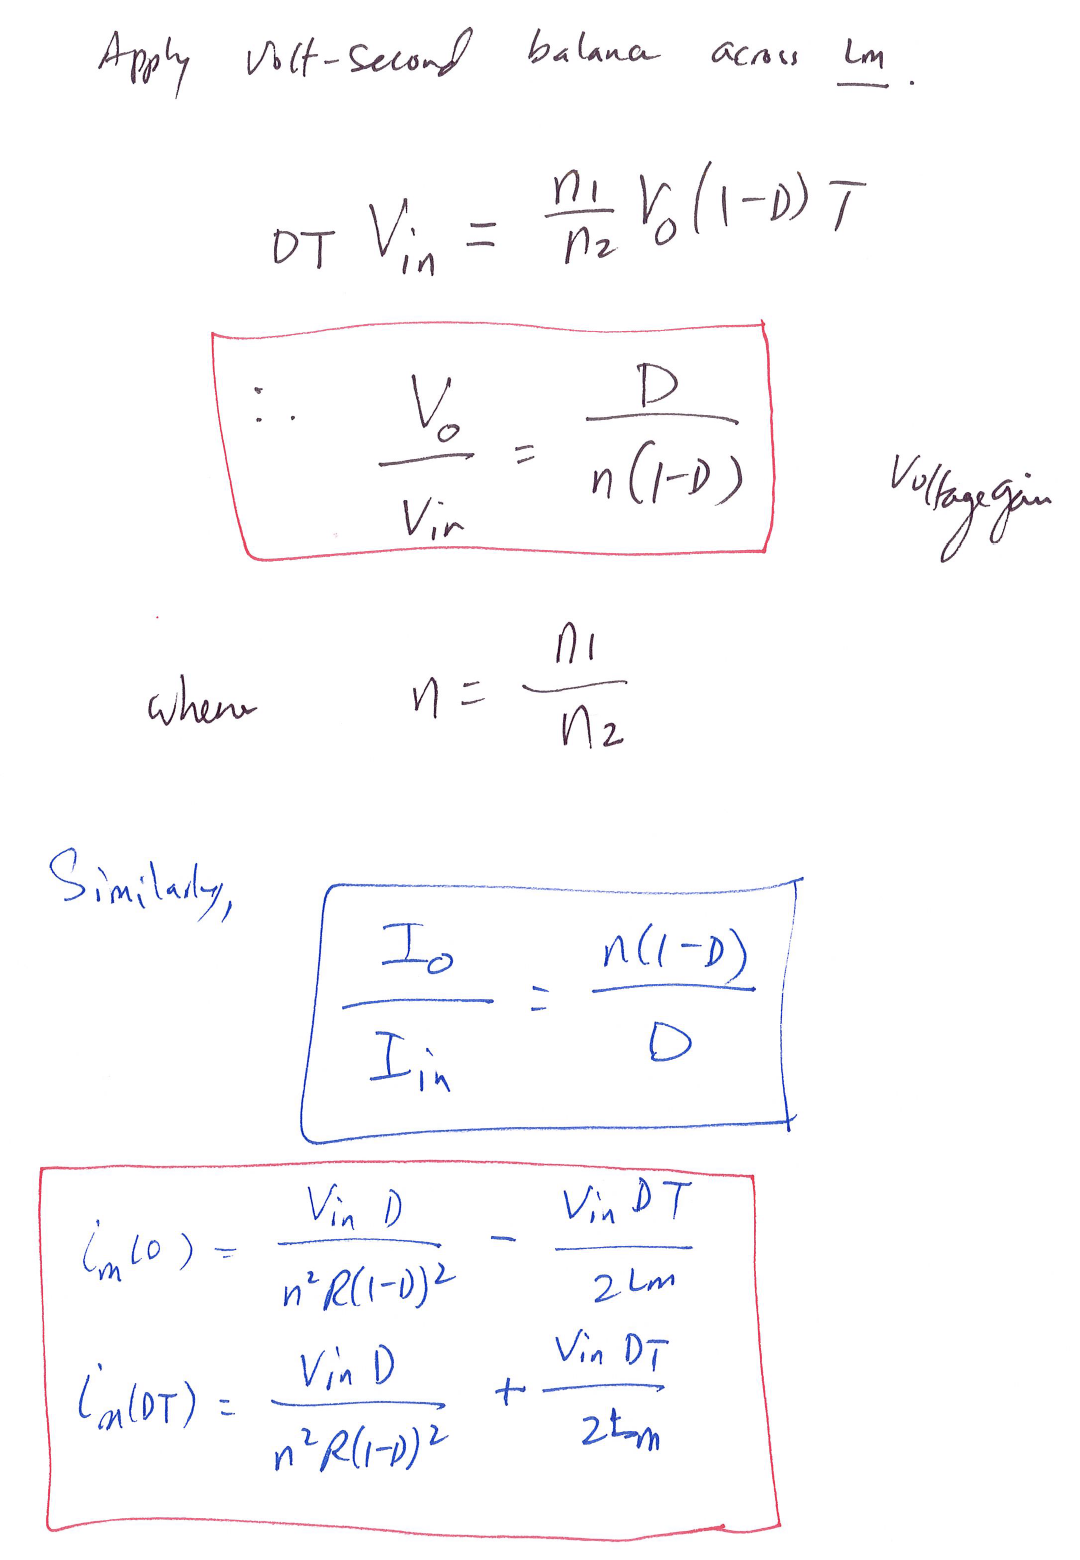 Apply Volt-Second balance across Lm.
DT Vin = n1/n2 Vo (1-D) T
∴ Vo/Vin = D/n(1-D)
Voltage gain
where n = n1/n2
Similarly,
Io/Iin = n(1-D)/D
im(0) = Vin D/n²R(1-D)² - Vin DT/2Lm
im(DT) = Vin D/n²R(1-D)² + Vin DT/2Lm